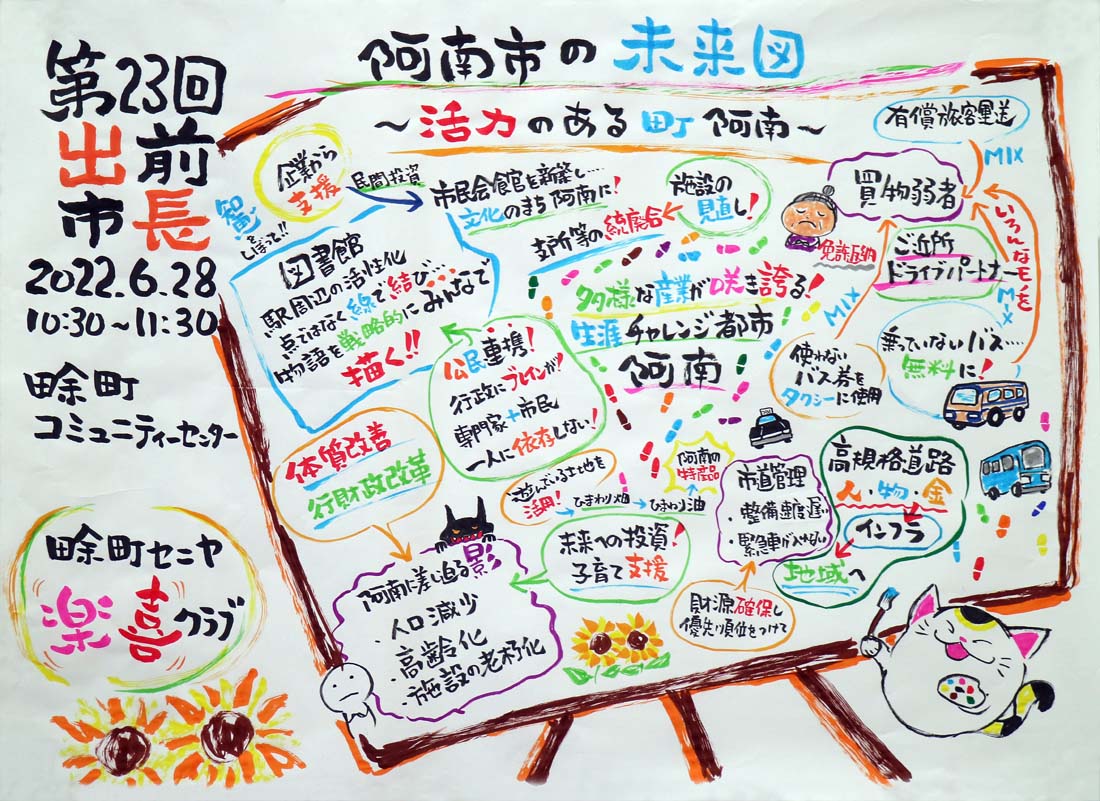 第23回
出前
市長
2022.6.28
10:30~11:30
畭町
コミュニティーセンター
畭町セニヤ
楽喜クラブ
阿南市の未来図
~活力のある町阿南~
企業から
支援
民間投資
智を
しぼって!!
市民会館を新築し…
文化のまち阿南に!
施設の
見直し!
支所等の統廃合
図書館
駅周辺の活性化
点ではなく線で結び…
物語を戦略的にみんなで
描く!!
多様な産業が咲き誇る!
生涯チャレンジ都市
阿南
公民連携!
行政にブレインが!
専門家+市民
一人に依存しない!
体質改善
行財政改革
遊んでいる土地を
活用!
ひまわり畑
ひまわり油
阿南の
特産品
未来への投資!
子育て支援
阿南に差し迫る影
・人口減少
・高齢化
・施設の老朽化
有償旅客運送
MIX
買物弱者
免許返納
ご近所
ドライブパートナー
いろんなモノを
MIX
MIX
乗っていないバス…
無料に!
使わない
バス券を
タクシーに使用
市道管理
・整備速度遅い
・緊急車が入れない
財源確保し
優先順位をつけて
高規格道路
人・物・金
インフラ
地域へ